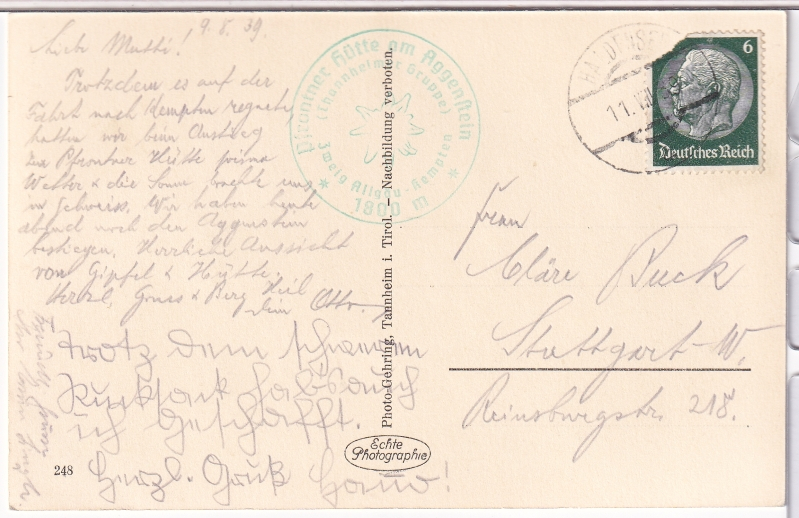 9.8.39
Liebe Mutti!
Trotzdem es auf der
Fahrt nach Kempten regnete,
hatten wir beim Anstieg
zur Pfrontner Hütte prima
Wetter & die Sonne brachte uns
in Schweiss. Wir haben heute
abend noch den Aggenstein
bestiegen. Herrliche Aussicht
von Gipfel & Hütte.
Herzl. Gruss & Berg Heil
Dein Otto.
Trotz dem schweren
Rucksack hab's auch
ich geschafft.
Herzl. Gruß Hans!
248
Pfrontner Hütte am Aggenstein
(Thannheimer Gruppe)
Zweig Allgäu-Kempten
1800 m
Photo-Gehring, Tannheim i. Tirol. — Nachbildung verboten.
Echte
Photographie
11. VIII
6
Deutsches Reich
Frau
Cläre Buck
Stuttgart-W.
Reinsburgstr. 218.